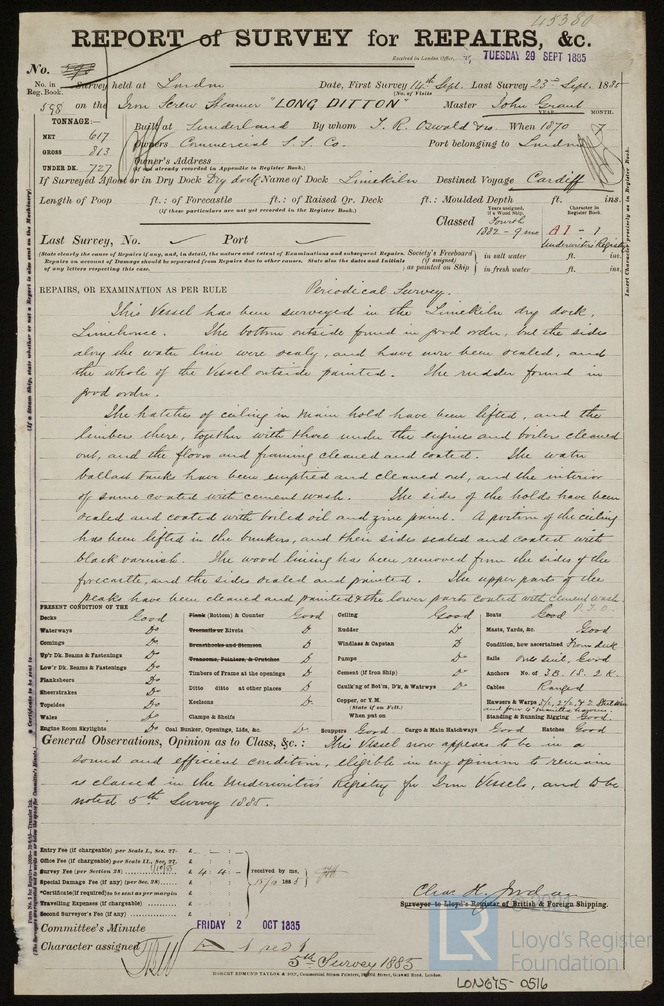 45380
REPORT of SURVEY for REPAIRS, &c.
Received in London Office, TUESDAY 29 SEPT 1885
No. Survey held at London Date, First Survey 14th Sept. Last Survey 23rd Sept. 1885
No. in Reg. Book. (No. of Visits
598 on the Iron Screw Steamer "LONG DITTON" Master John Grant
TONNAGE:— YEAR. MONTH.
Built at Sunderland By whom T. R. Oswald & Co. When 1870 7
NET 617
GROSS 813 Owners Commercial S. S. Co. Port belonging to London
UNDER DK. 727 Owner's Address
(If not already recorded in Appendix to Register Book.)
If Surveyed Afloat or in Dry Dock Dry dock Name of Dock Limekiln Destined Voyage Cardiff
Length of Poop ft.: of Forecastle ft.: of Raised Qr. Deck ft.: Moulded Depth ft. ins.
(If these particulars are not yet recorded in the Register Book.)
Years assigned, if a Wood Ship. Character in Register Book.
Classed Fourth 1882 - 9 mo A1 - 1
Underwriters Registry
Last Survey, No. Port
(State clearly the cause of Repairs if any, and, in detail, the nature and extent of Examinations and subsequent Repairs.
Repairs on account of Damage should be separated from Repairs due to other causes. State also the dates and Initials
of any letters respecting this case.
Society's Freeboard (if assigned) as painted on Ship
in salt water ft. ins.
in fresh water ft. ins.
Insert Character precisely as in Register Book.
REPAIRS, OR EXAMINATION AS PER RULE Periodical Survey.
This Vessel has been surveyed in the Limekiln dry dock,
Limehouse. The bottom outside found in good order, but the sides
along the water line were scaly, and have now been scaled, and
the whole of the Vessel outside painted. The rudder found in
good order.
The hatches of ceiling in main hold have been lifted, and the
limbers there, together with those under the engines and boilers cleaned
out, and the floors and framing cleaned and coated. The water
ballast tanks have been emptied and cleaned out, and the interior
of same coated with cement wash. The sides of the holds have been
scaled and coated with boiled oil and zinc paint. A portion of the ceiling
has been lifted in the bunkers, and their sides scaled and coated with
black varnish. The wood lining has been removed from the sides of the
forecastle, and the sides scaled and painted. The upper parts of the
peaks have been cleaned and painted & the lower parts coated with cement wash.
P.T.O.
PRESENT CONDITION OF THE
Decks Good
Waterways Do
Comings Do
Up'r Dk. Beams & Fastenings Do
Low'r Dk. Beams & Fastenings Do
Planksheers Do
Sheerstrakes Do
Topsides Do
Wales Do
Engine Room Skylights Do
Plank (Bottom) & Counter Good
Treenails or Rivets D
Breasthooks and Stemson D
Transoms, Pointers, & Crutches D
Timbers of Frame at the openings D
Ditto ditto at other places D
Keelsons D
Clamps & Shelfs
Coal Bunker, Openings, Lids, &c. Do
Ceiling Good
Rudder D
Windlass & Capstan D
Pumps Do
Cement (if Iron Ship) Do
Caulk'ng of Bot'm, D'k, & Watrwys Do
Copper, or Y.M.
(State if on Felt.)
When put on
Scuppers Good Cargo & Main Hatchways Good Hatches Good
Boats Good
Masts, Yards, &c. Good
Condition, how ascertained From deck
Sails One suit, Good
Anchors No. of 3B. 1S. 2K.
Cables Ranged
Hawsers & Warps
Standing & Running Rigging Good
General Observations, Opinion as to Class, &c.: This Vessel now appears to be in a
sound and efficient condition, eligible in my opinion to remain
as classed in the Underwriters Registry for Iron Vessels, and to be
noted 5th Survey 1885.
Entry Fee (if chargeable) per Scale I., Sec. 27. £
Office Fee (if chargeable) per Scale II., Sec. 27. £
Survey Fee (per Section 28) £ 4 : 4 : -
Special Damage Fee (if any) (per Sec. 28) £
*Certificate (if required) to be sent as per margin
Travelling Expenses (if chargeable) £
Second Surveyor's Fee (if any) £
received by me,
15/10 1885
Chas. H. Jordan
Surveyor to Lloyd's Register of British & Foreign Shipping.
Committee's Minute FRIDAY 2 OCT 1885
Character assigned
5th Survey 1885
ROBERT EDMUND TAYLOR & SON, Commercial Steam Printers, London.
LR
Lloyd's Register
Foundation
LON675-0516